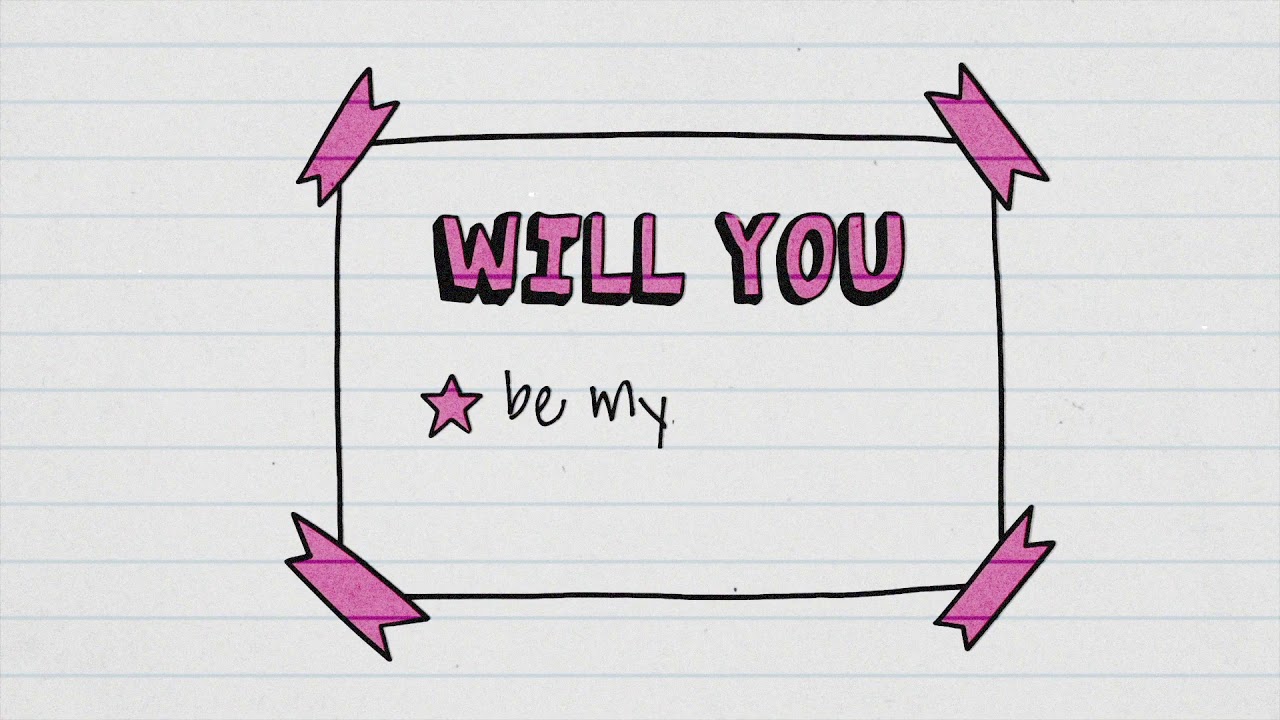 WILL YOU
be my